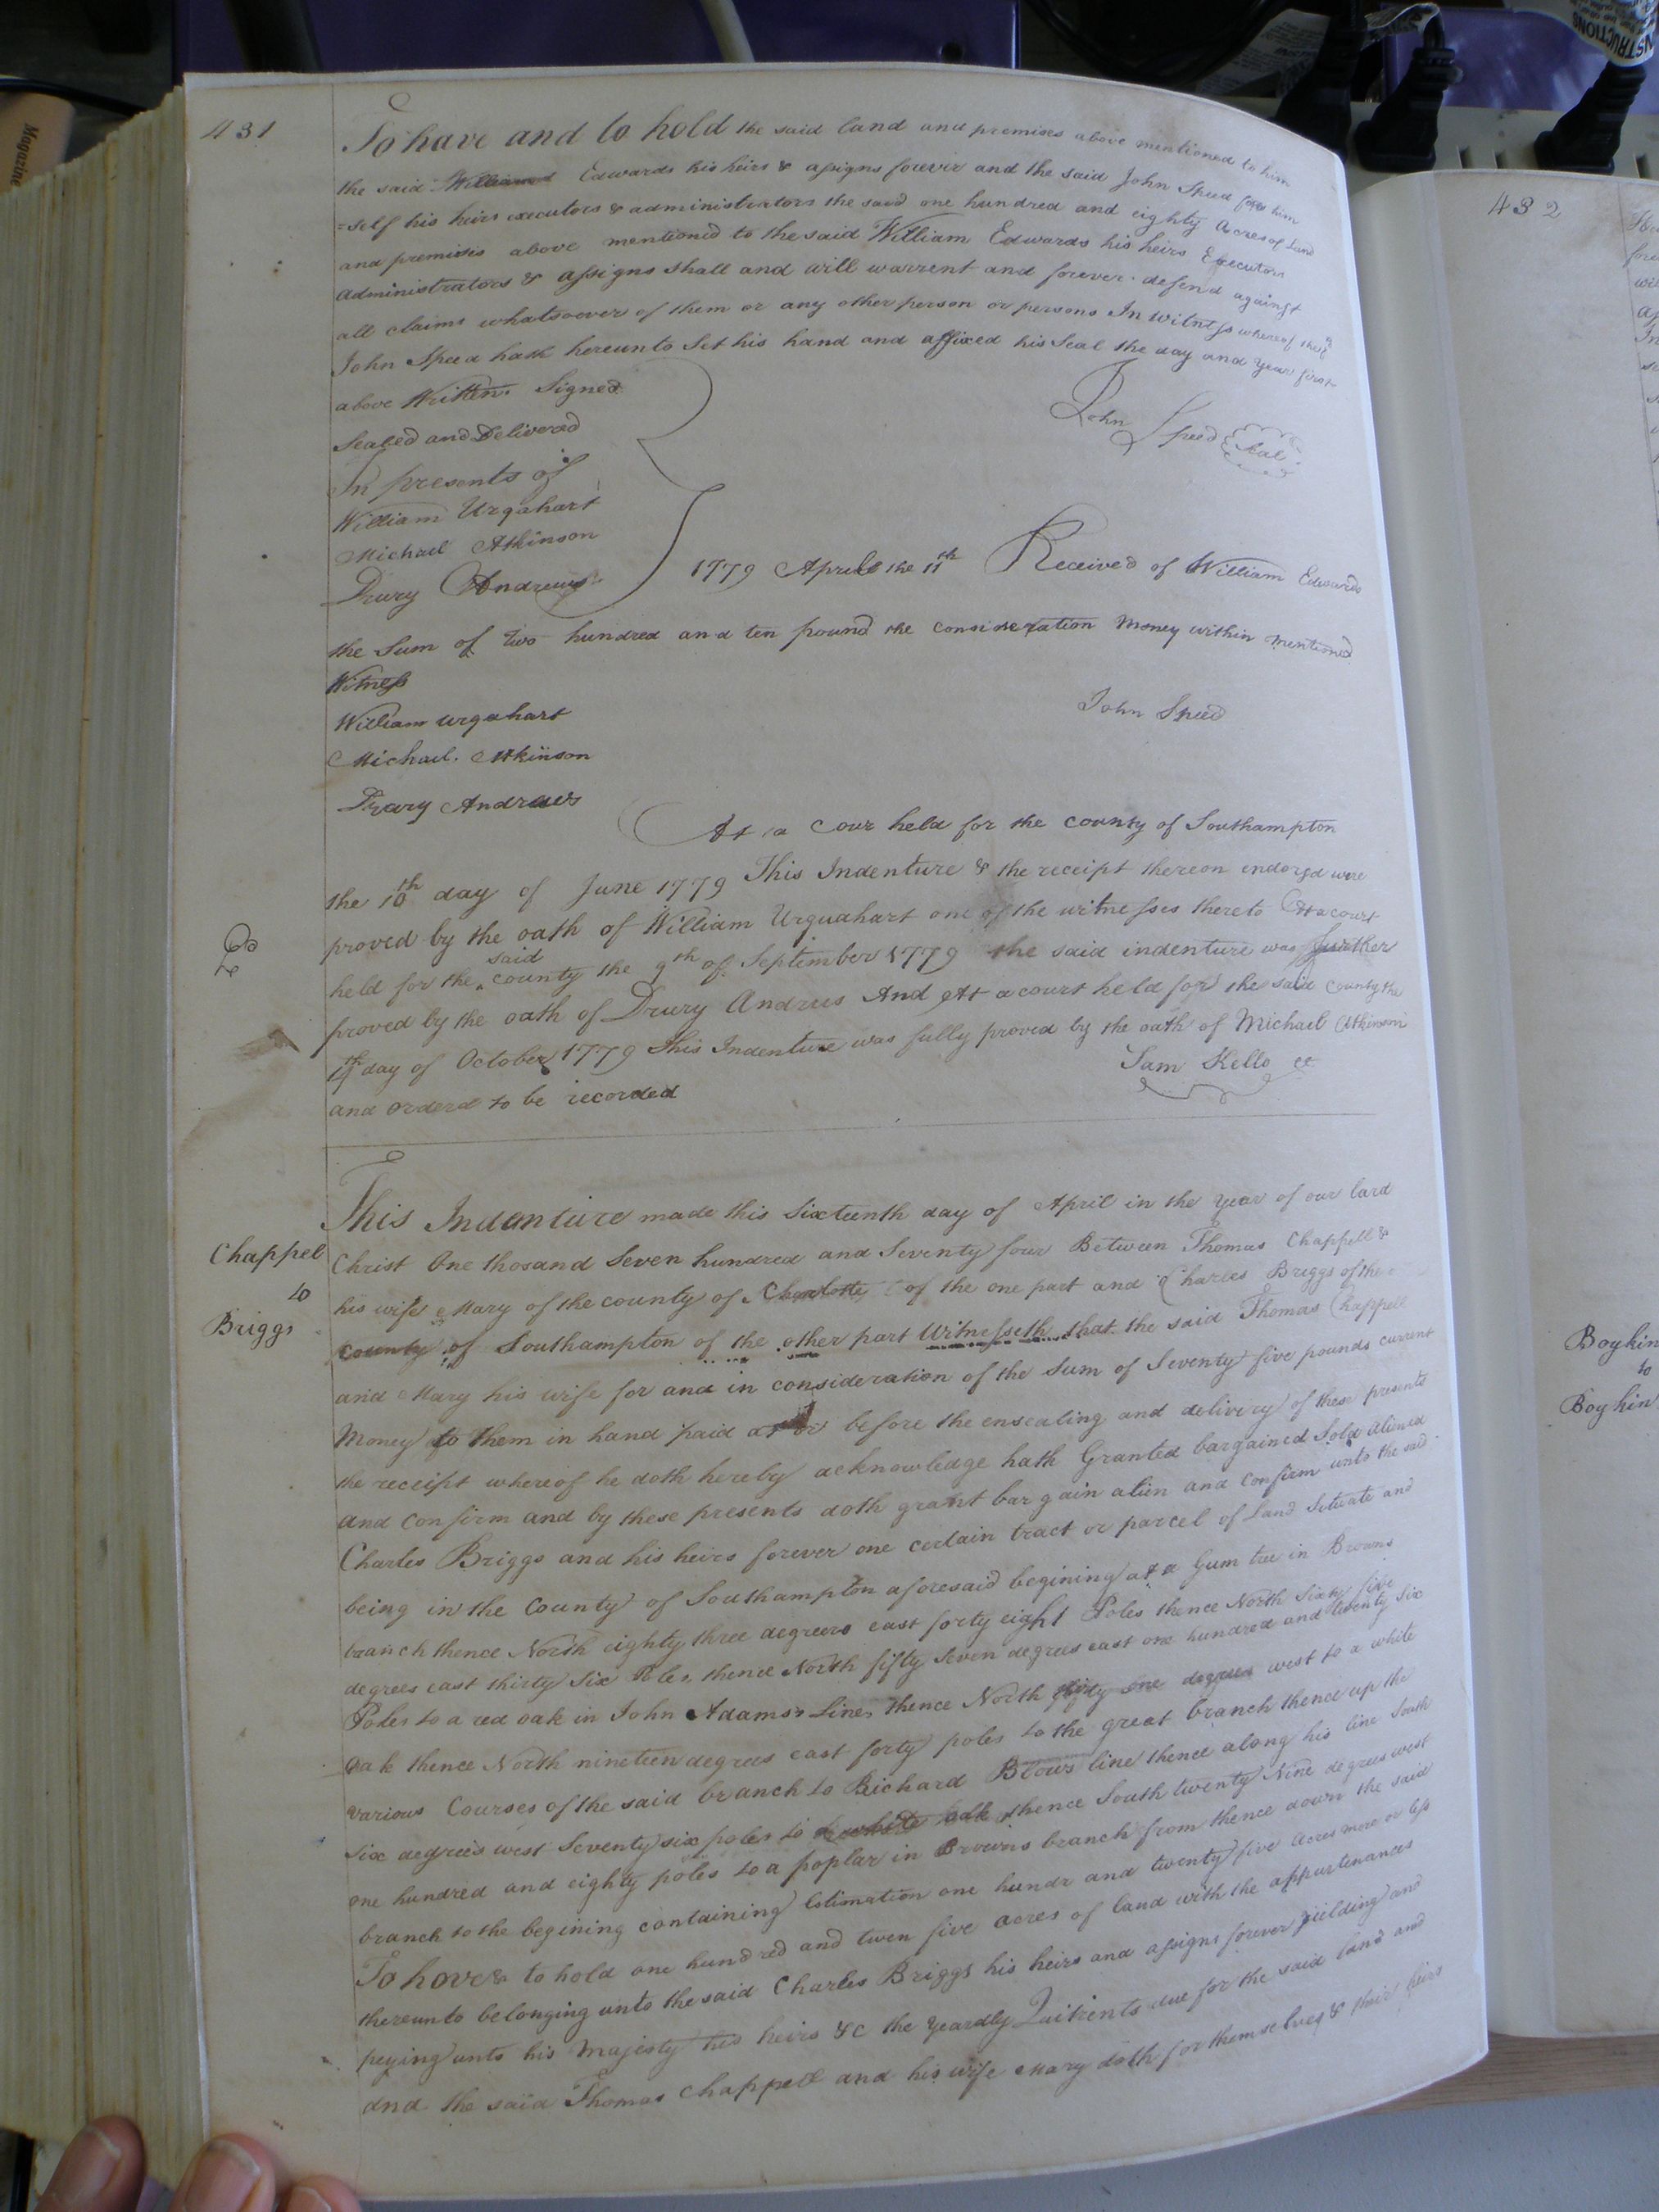 431
To have and to hold the said land and premises above mentioned to him
the said William Edwards his heirs & assigns forever and the said John Speed for him
=self his heirs executors & administrators the said one hundred and eighty Acres of Land
and premises above mentioned to the said William Edwards his heirs Executors
Administrators & assigns shall and will warrent and forever defend against
all claims whatsoever of them or any other person or persons In Witness whereof the sd
John Speed hath hereunto Set his hand and affixed his Seal the day and Year first
above Written. Signed
Sealed and Delivered
In presents of
William Urqahart
Michael Atkinson
Drury Andrews
John Speed Seal
1779 April the 11th Received of William Edwards
the Sum of Two hundred and ten pound the consideration Money within mentioned
Witness
William urqahart
Michael. Atkinson
Drary Andrews
John Speed
At a Cour held for the county of Southampton
the 10th day of June 1779 This Indenture & the receipt thereon endorsd were
proved by the oath of William Urquahart one of the witnesses thereto At a court
held for the said county the 9th of September 1779 the said indenture was further
proved by the oath of Drury Andrus And At a court held for the said County the
14th day of October 1779 This Indenture was fully proved by the oath of Michael Atkinson
and ordered to be recorded
Sam Kello cc
Chappel
to
Briggs
This Indenture made this Sixteenth day of April in the Year of our lord
Christ One thosand Seven hundred and Seventy four Between Thomas Chappell &
his wife Mary of the county of Charlotte of the one part and Charles Briggs of the
county of Southampton of the other part Witnesseth that the said Thomas Chappell
and Mary his wife for and in consideration of the Sum of Seventy five pounds current
Money to them in hand paid at or before the ensealing and delivery of these presents
the receipt whereof he doth hereby acknowledge hath Granted bargained Sold aliened
and confirm and by these presents doth grant bargain alien and confirm unto the said
Charles Briggs and his heirs forever one certain tract or parcel of Land Situate and
being in the County of Southampton aforesaid begining at a Gum tree in Browns
branch thence North eighty three degrees east forty eight Poles thence North Sixty five
degrees east thirty Six Poles, thence North fifty Seven degrees east one hundred and twenty Six
Poles to a red oak in John Adams's Line, thence North one degrees west to a white
oak thence North nineteen degrees east forty poles to the great branch thence up the
various Courses of the said branch to Richard Blows line thence along his line South
Six degrees west Seventy six poles to a white oak thence South twenty Nine degrees west
one hundred and eighty poles to a poplar in Browns branch from thence down the said
branch to the begining containing Estimation one hundr and twenty five acres more or less
To have & to hold one hundred and twen five acres of land with the appurtenances
thereunto belonging unto the said Charles Briggs his heirs and assigns forever yielding and
peying unto his Majesty his heirs &c the Yeardly Quitrents due for the said land and
and the said Thomas Chappell and his wife Mary doth for themselves & their heirs
432
Boykin
to
Boykin